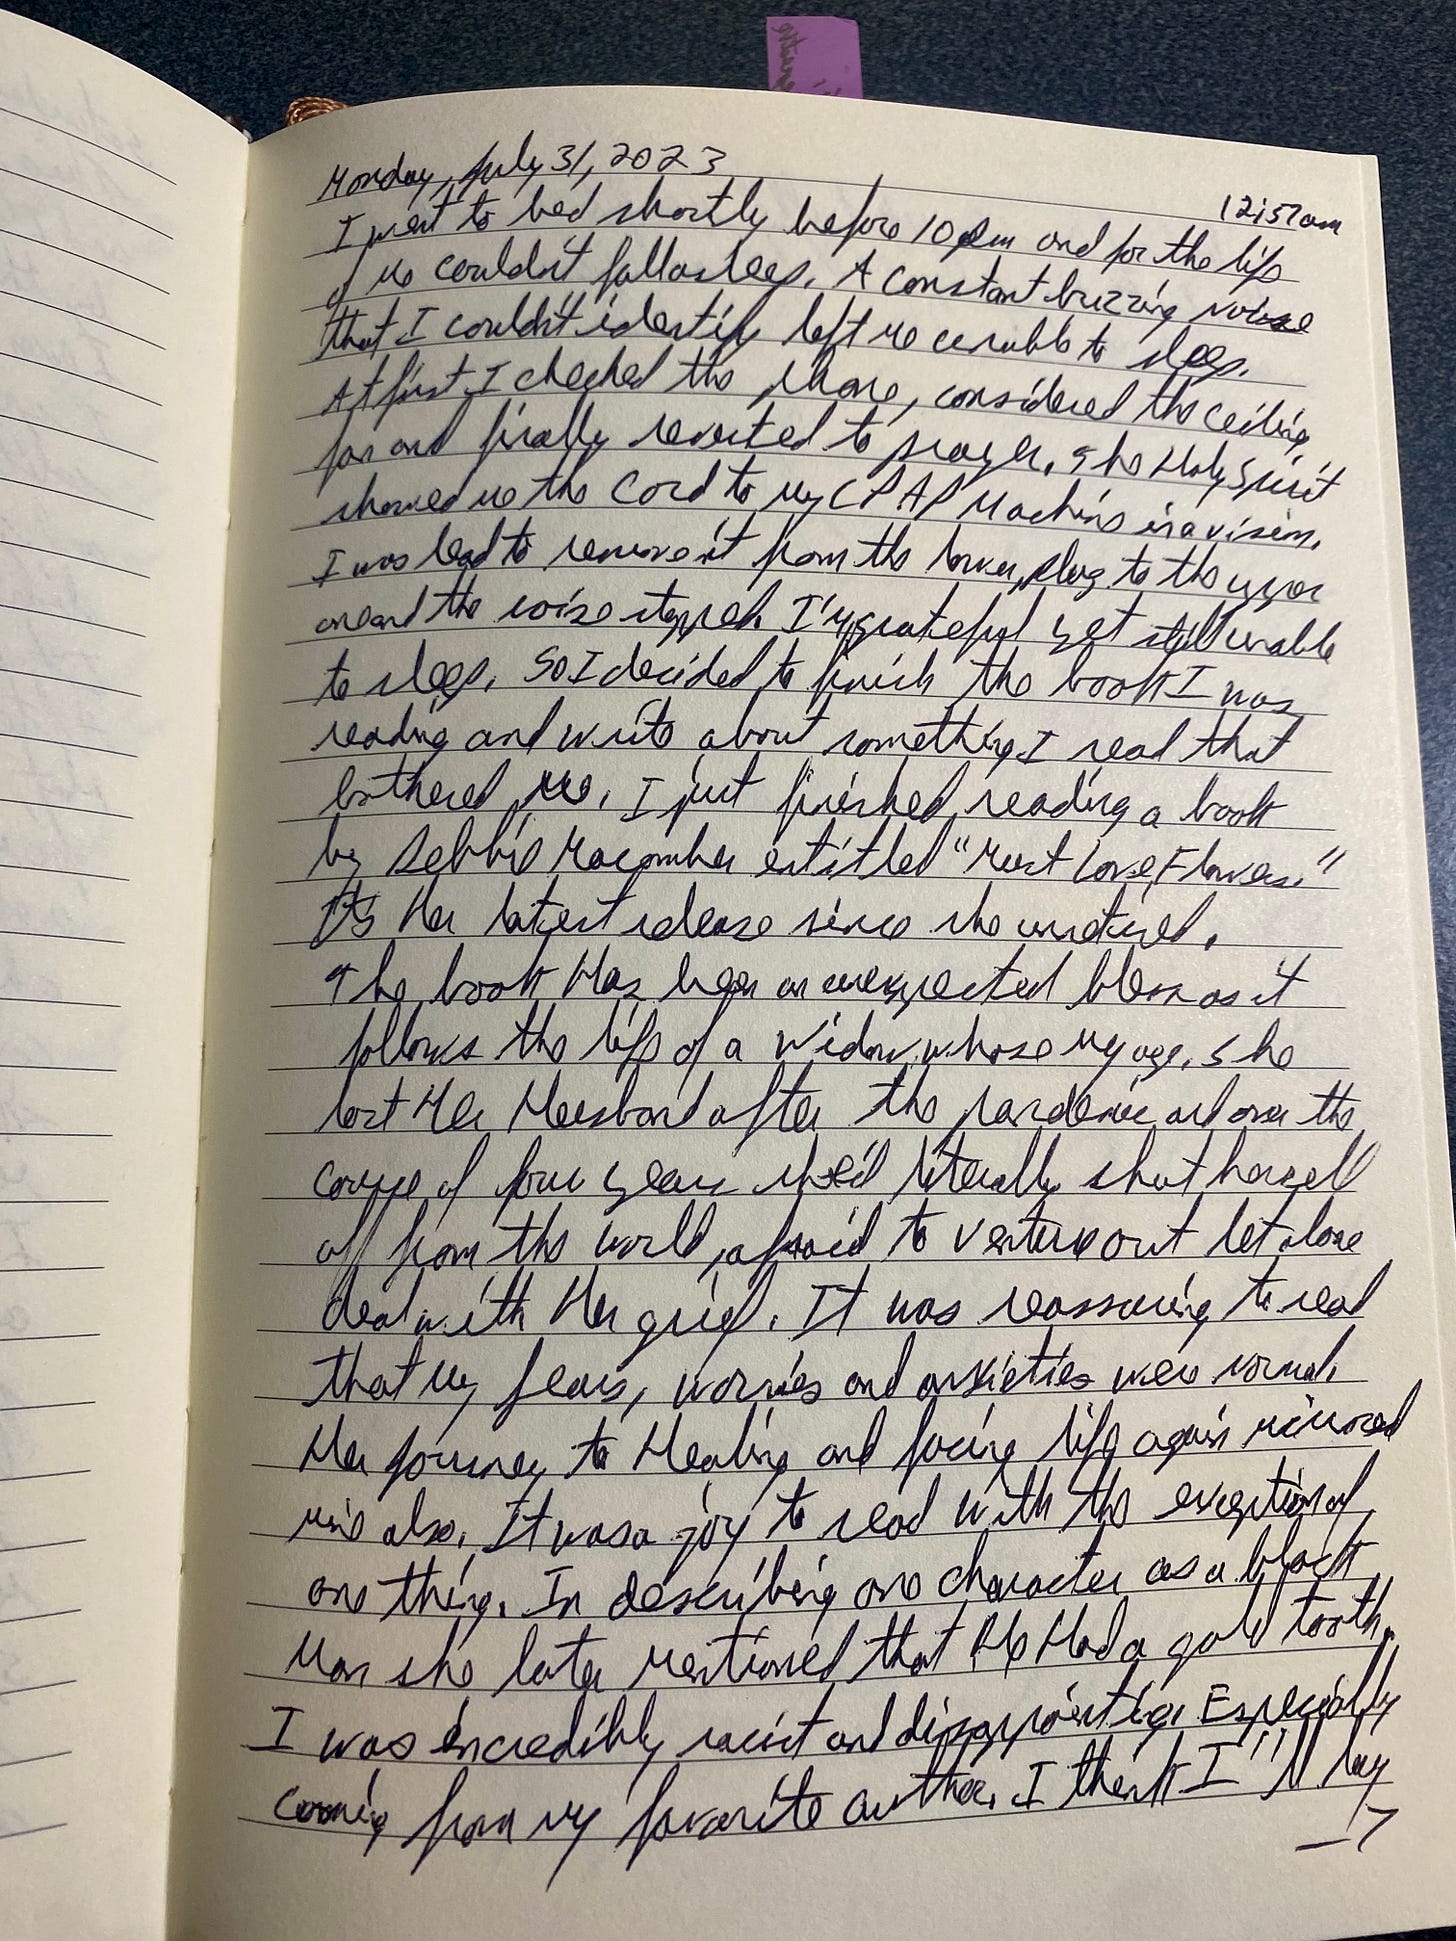 Monday, July 31, 2023
12:57am
I went to bed shortly before 10pm and for the life
of me couldn't fall asleep. A constant buzzing noise
that I couldn't identify left me unable to sleep.
At first I checked the phone, considered the ceiling
fan and finally reverted to prayer. The Holy Spirit
showed me the Cord to my CPAP Machine in a vision.
I was lead to remove it from the lower plug to the upper
one and the noise stopped. I'm grateful yet still unable
to sleep. So I decided to finish the book I was
reading and write about something I read that
bothered me. I just finished reading a book
by Debbie Macomber entitled "Must Love Flowers."
It's Her latest release since she unretired.
The book Has been an unexpected bless as it
follows the life of a Widow whose my age. She
lost Her Husband after the pandemic and over the
course of four years she'd literally shut herself
off from the world, afraid to venture out let alone
deal with Her grief. It was reassuring to read
that my fears, worries and anxieties were normal.
Her journey to Healing and facing life again mirrored
mine also. It was a joy to read with the exception of
one thing. In describing one character as a black
Man she later mentioned that He Had a gold tooth.
I was incredibly racist and disappointing. Especially
coming from my favorite author. I think I'll buy
→